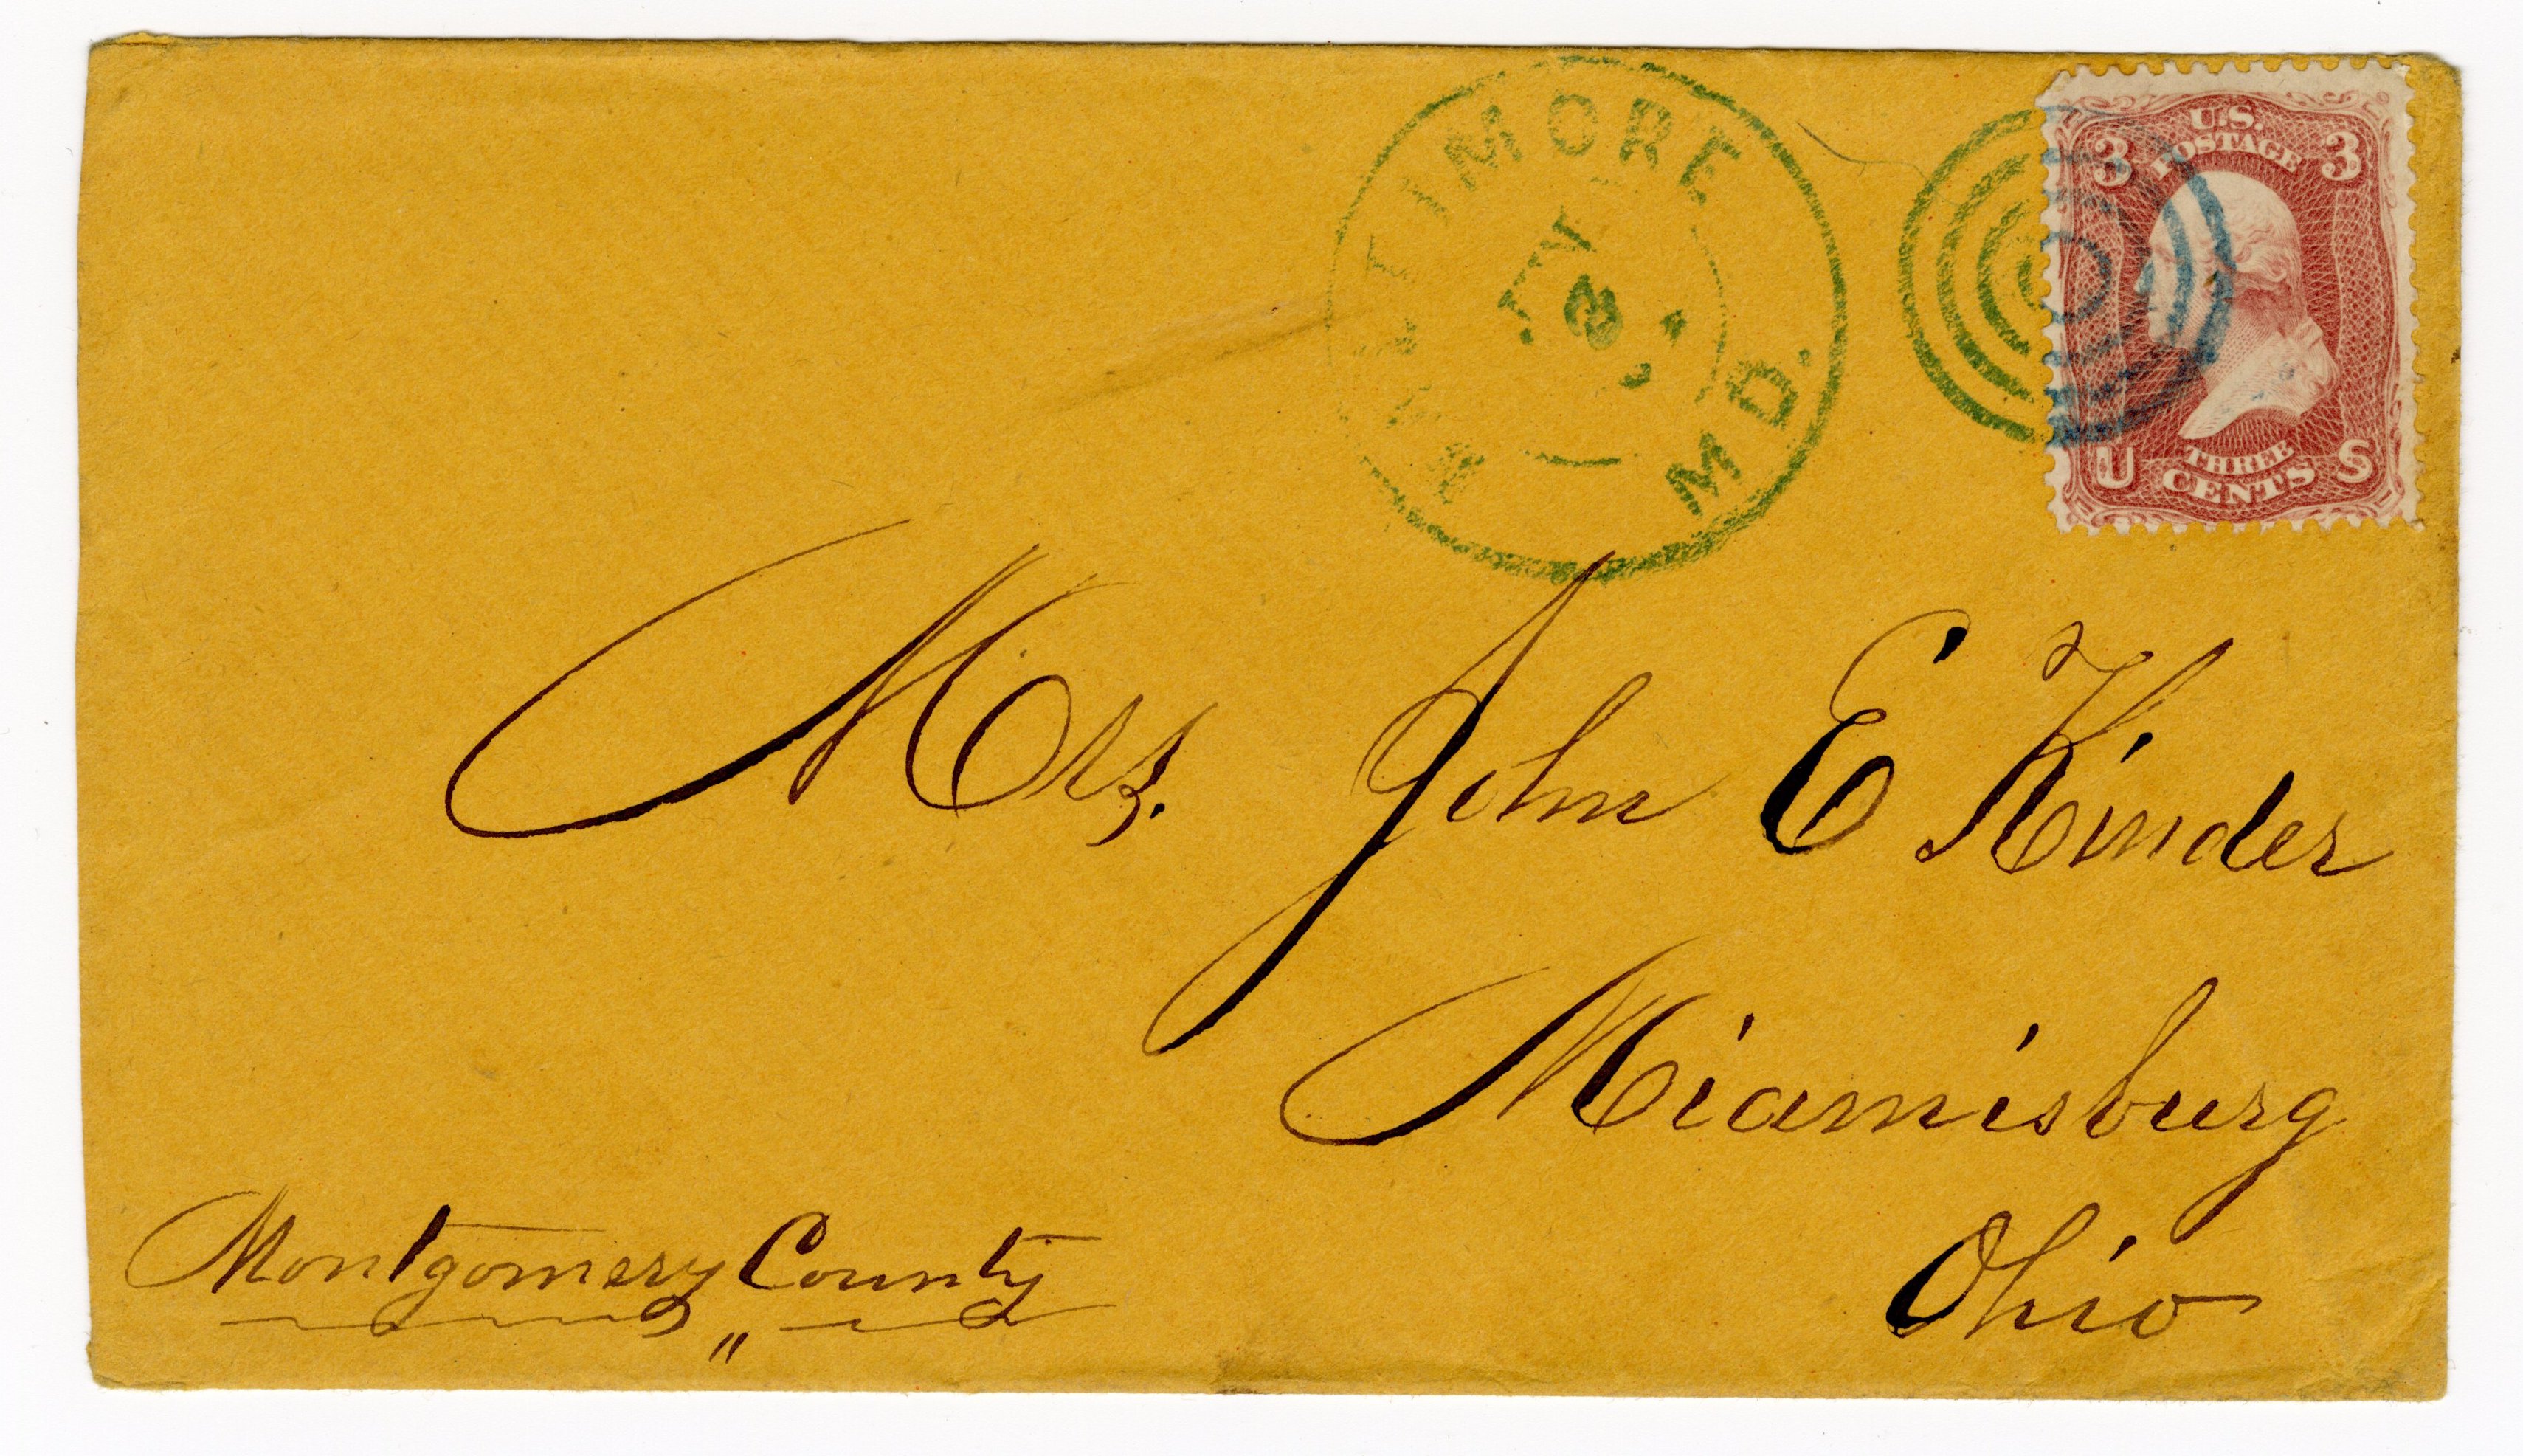 BALTIMORE MD.
3 U.S. POSTAGE 3
U THREE CENTS S
Mrs. John E Kinder
Miamisburg
Ohio
Montgomery County